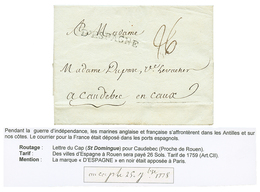 A Madame
D'ESPAGNE
26
Madame
a Caudebec en Caux
Pendant la guerre d'indépendance, les marines anglaise et française s'affrontèrent dans les Antilles et sur
nos côtes. Le courrier pour la France était déposé dans les ports espagnols.
Routage : Lettre du Cap (St Domingue) pour Caudebec (Proche de Rouen).
Tarif : Des villes d'Espagne à Rouen sera payé 26 Sols. Tarif de 1759 (Art.CII)
Mention : La marque « D'ESPAGNE » en noir était apposée à Paris.
au cap le 25. 1778